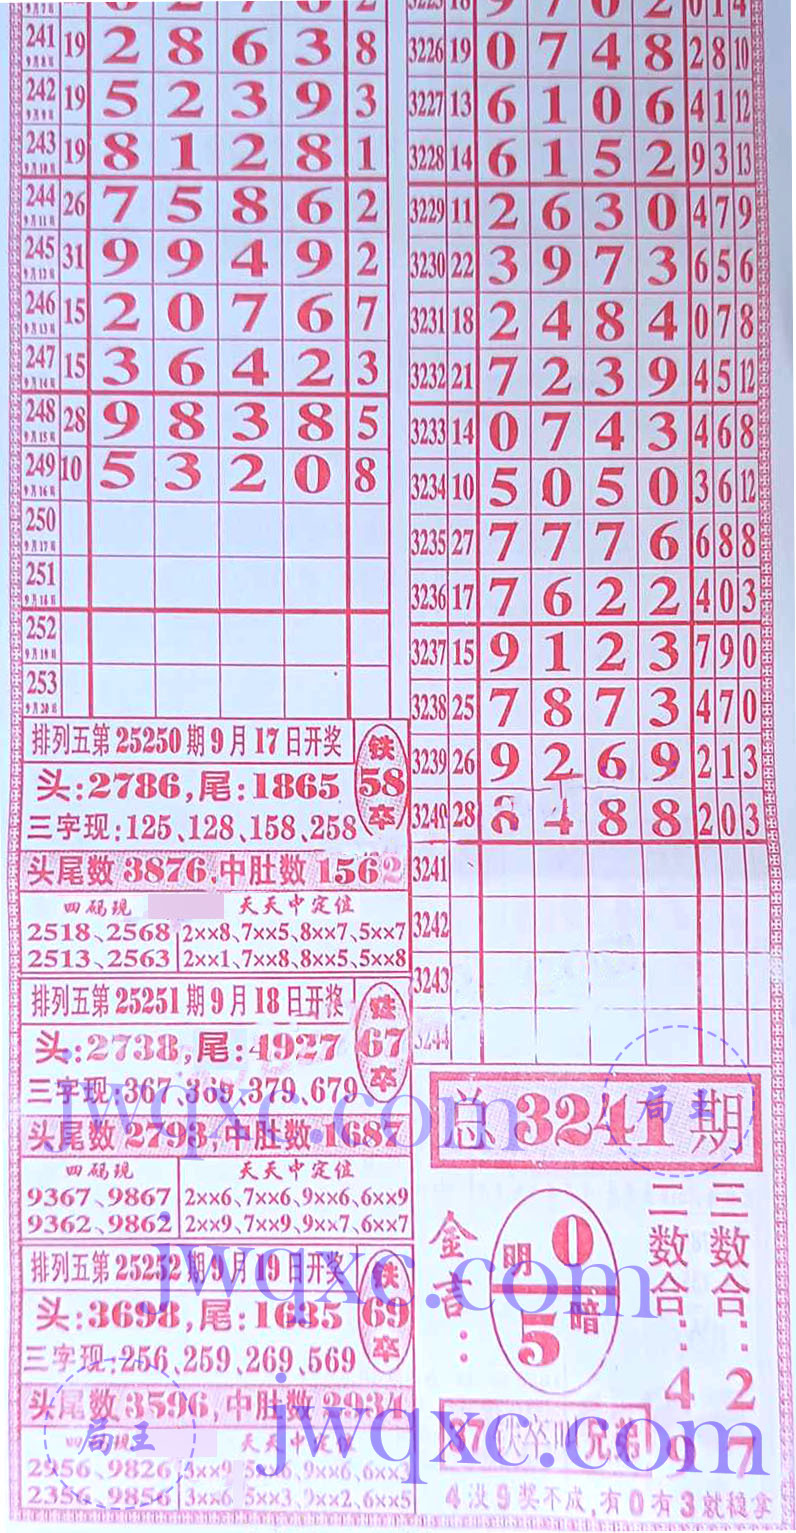 241 9月8日 19 2 8 6 3 8
242 9月9日 19 5 2 3 9 3
243 9月10日 19 8 1 2 8 1
244 9月11日 26 7 5 8 6 2
245 9月12日 31 9 9 4 9 2
246 9月13日 15 2 0 7 6 7
247 9月14日 15 3 6 4 2 3
248 9月15日 28 9 8 3 8 5
249 9月16日 10 5 3 2 0 8
250 9月17日
251 9月18日
252 9月19日
253 9月20日
排列五第25250期9月17日开奖
头:2786,尾:1865
三字现:125、128、158、258
铁
58
卒
头尾数3876,中肚数1562
四码现 天天中定位
2518、2568 2××8、7××5、8××7、5××7
2513、2563 2××1、7××8、8××5、5××8
排列五第25251期9月18日开奖
头:2738,尾:4927
三字现:367、369、379、679
铁
67
卒
头尾数2793,中肚数1687
四码现 天天中定位
9367、9867 2××6、7××6、9××6、6××9
9362、9862 2××9、7××9、9××7、6××7
排列五第25252期9月19日开奖
头:3698,尾:1635
三字现:256、259、269、569
铁
69
卒
头尾数3596,中肚数2934
四码现 天天中定位
2956、9826
2356、9856
3226 19 0 7 4 8 2 8 10
3227 13 6 1 0 6 4 1 12
3228 14 6 1 5 2 9 3 13
3229 11 2 6 3 0 4 7 9
3230 22 3 9 7 3 6 5 6
3231 18 2 4 8 4 0 7 8
3232 21 7 2 3 9 4 5 12
3233 14 0 7 4 3 4 6 8
3234 10 5 0 5 0 3 6 12
3235 27 7 7 7 6 6 8 8
3236 17 7 6 2 2 4 0 3
3237 15 9 1 2 3 7 9 0
3238 25 7 8 7 3 4 7 0
3239 26 9 2 6 9 2 1 3
3240 28 8 4 8 8 2 0 3
3241
3242
3243
3244
总3241期
金言:
明 0
5 暗
二数合:49
三数合:27
4没9奖不成,有0有3就稳拿
jwqxc.com
jwqxc.com
jwqxc.com
局王
局王